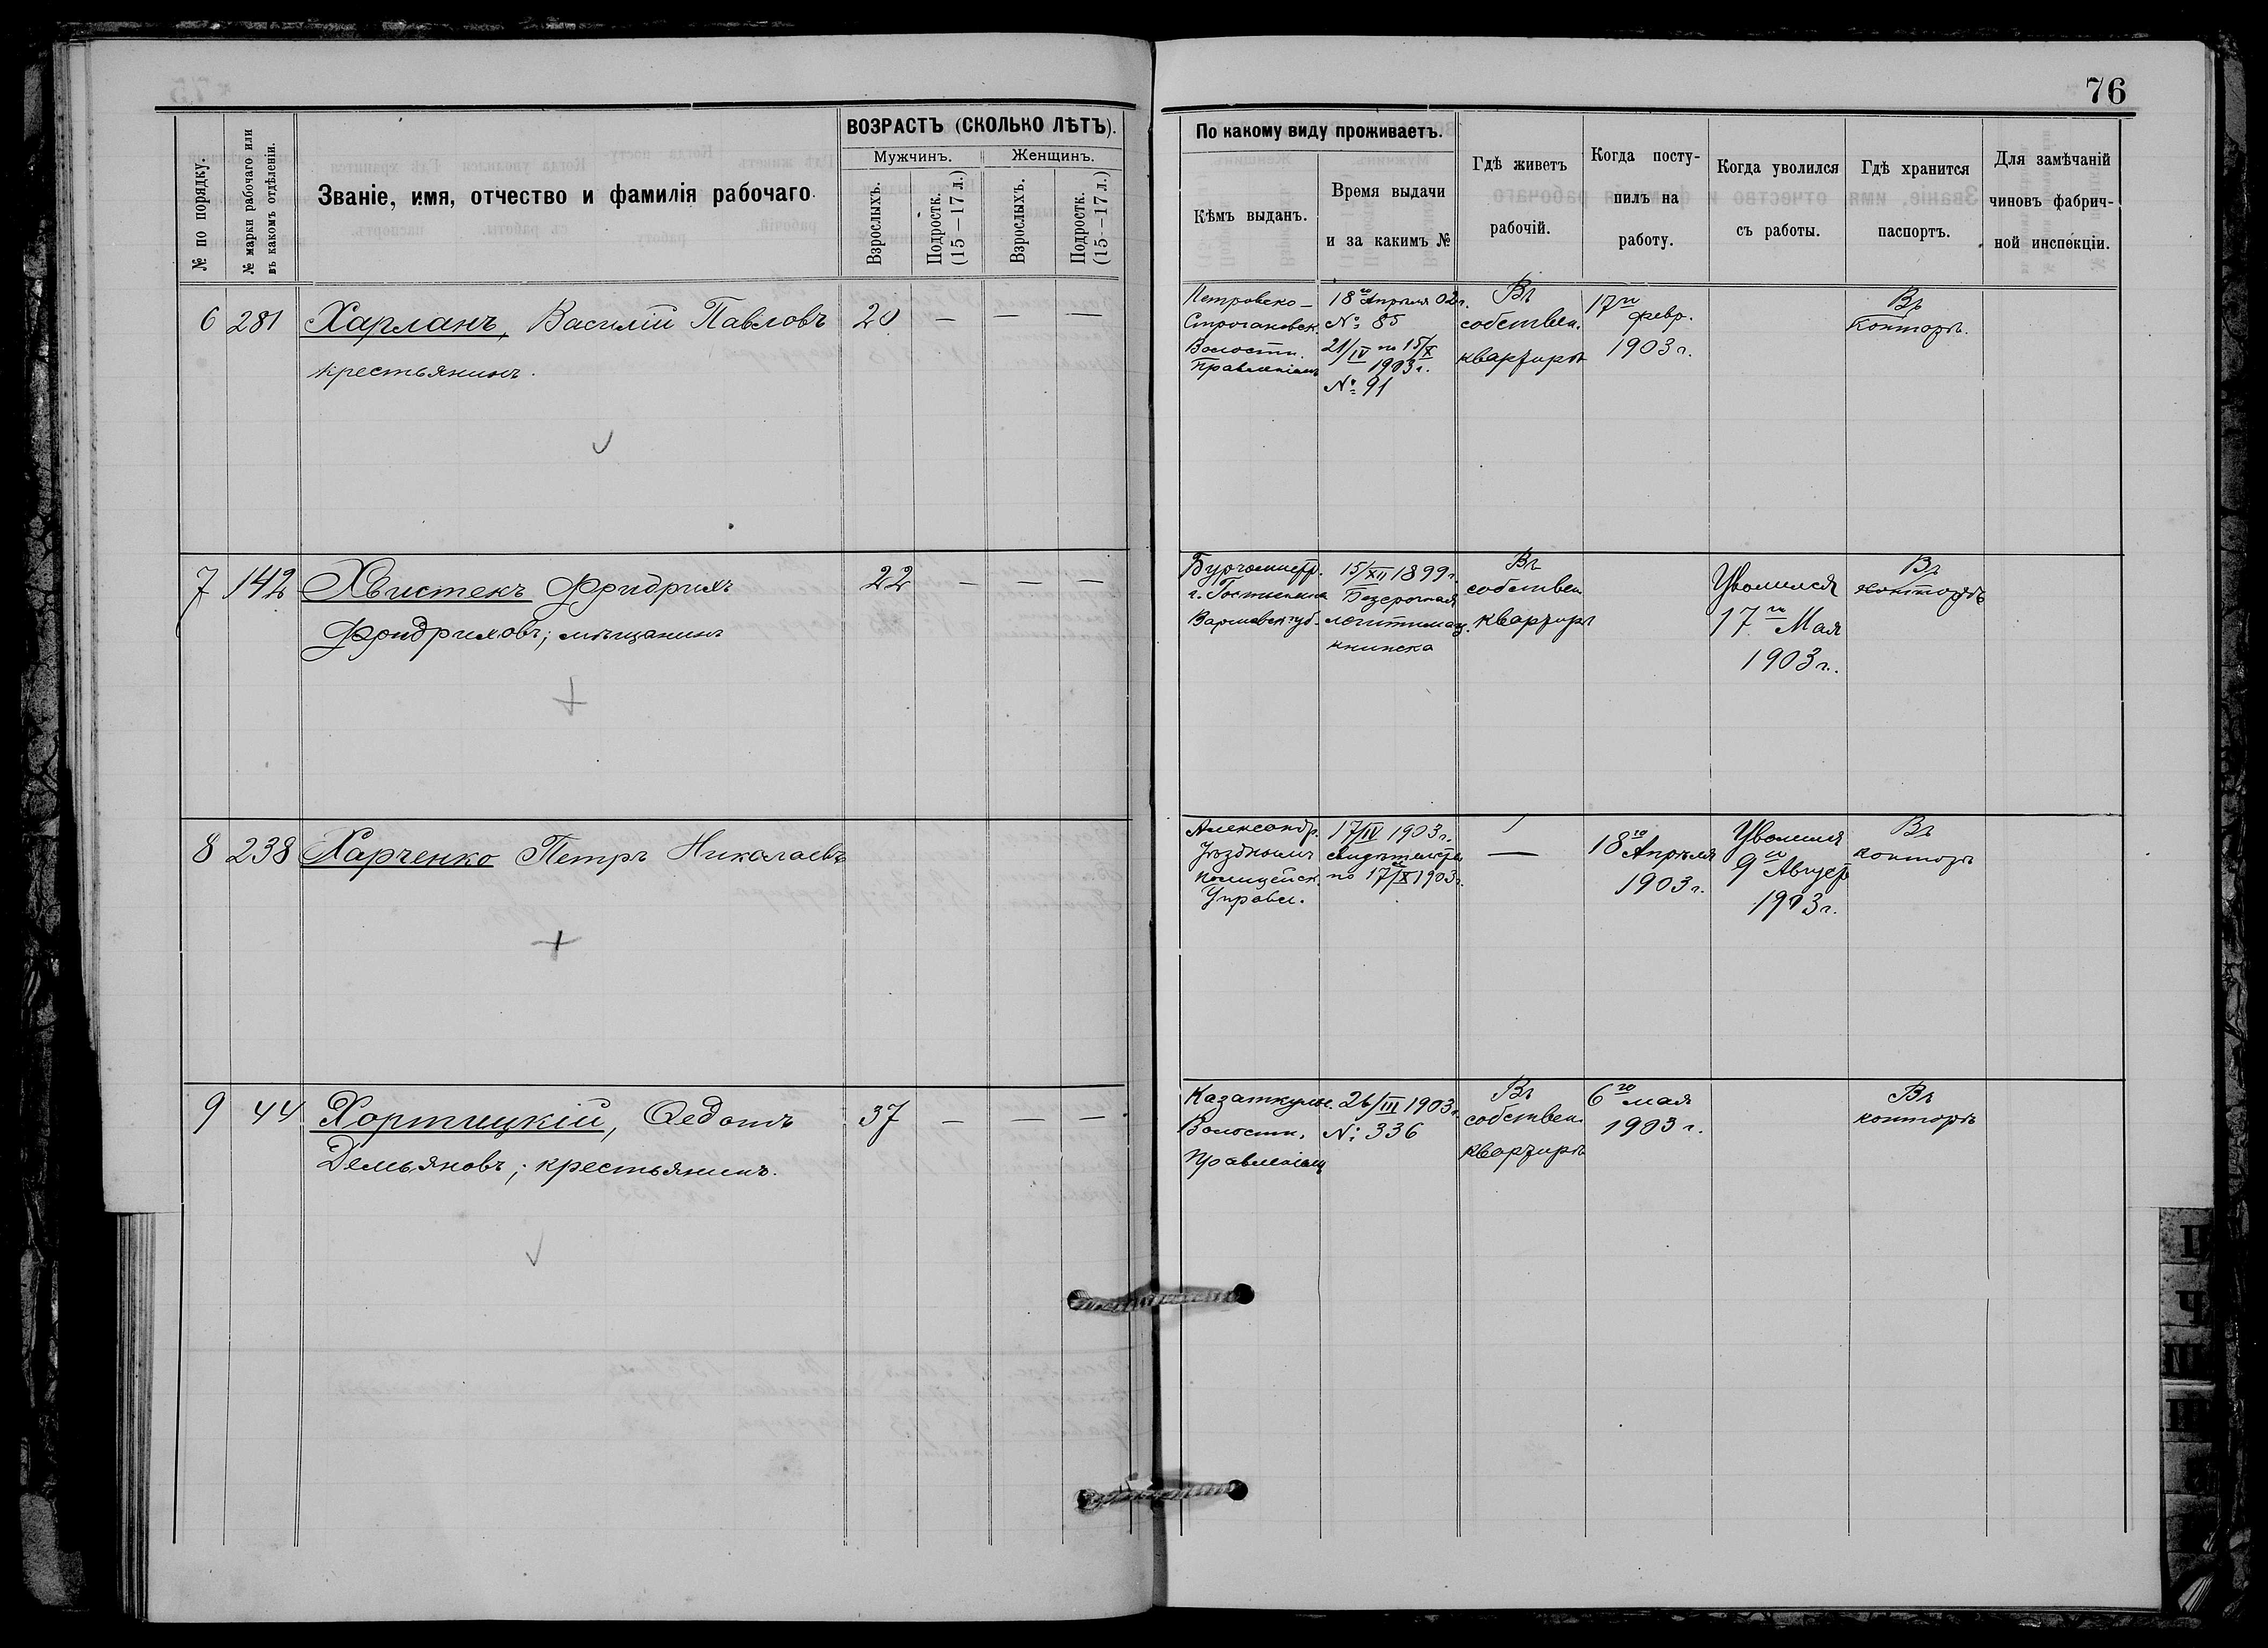 76
№ по порядку.
№ марки рабочаго или
въ какомъ отдѣленіи.
Званіе, имя, отчество и фамилія рабочаго.
ВОЗРАСТЪ (СКОЛЬКО ЛѢТЪ).
Мужчинъ.
Женщинъ.
Взрослыхъ.
Подростк.
(15—17 л.)
Взрослыхъ.
Подростк.
(15—17 л.)
По какому виду проживаетъ.
Кѣмъ выданъ.
Время выдачи
и за какимъ №
Гдѣ живетъ
рабочій.
Когда посту-
пилъ на
работу.
Когда уволился
съ работы.
Гдѣ хранится
паспортъ.
Для замѣчаній
чиновъ фабрич-
ной инспекціи.
6 281 Харланъ, Василій Павловъ 20 — — —
крестьянинъ.
Петровско-
Строгановск.
Волостн.
Правленіемъ
18го Апрѣля 02 г.
№ 85
21/IV по 15/X
1903 г.
№ 91
Въ
собствен.
квартирѣ
17го
февр.
1903 г.
Въ
Конторѣ.
7 142 Хвистекъ Фридрихъ 22 — — —
Фридриховъ; мѣщанинъ
Бургомистр.
г. Гостынина
Варшавск. губ.
15/XII 1899 г.
Безсрочная
легитимац.
книжка
Въ
собствен.
квартирѣ
Уволился
17го Мая
1903 г.
Въ
конторѣ
8 238 Харченко Петръ Николаевъ
Александр.
Уѣзднымъ
полицейск.
Управл.
17/IV 1903 г.
свидѣтельство
по 17/X 1903 г.
—
18го Апрѣля
1903 г.
Уволился
9го Августа
1903 г.
Въ
конторѣ
9 44 Хортицкій, Федотъ 37 — — —
Демьяновъ; крестьянинъ.
Волостн.
Правленіемъ
26/III 1903 г.
№ 336
Въ
собствен.
квартирѣ
6го мая
1903 г.
Въ
конторѣ